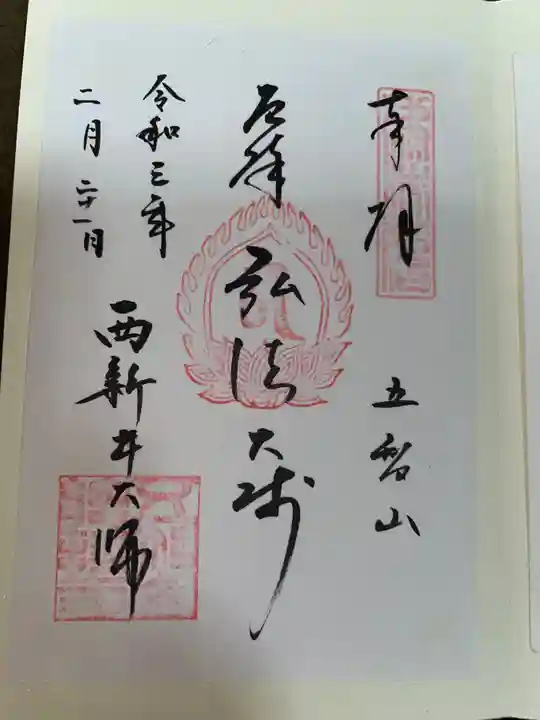 奉拝
五智山
弘法大師
令和三年
二月二十一日
西新井大師